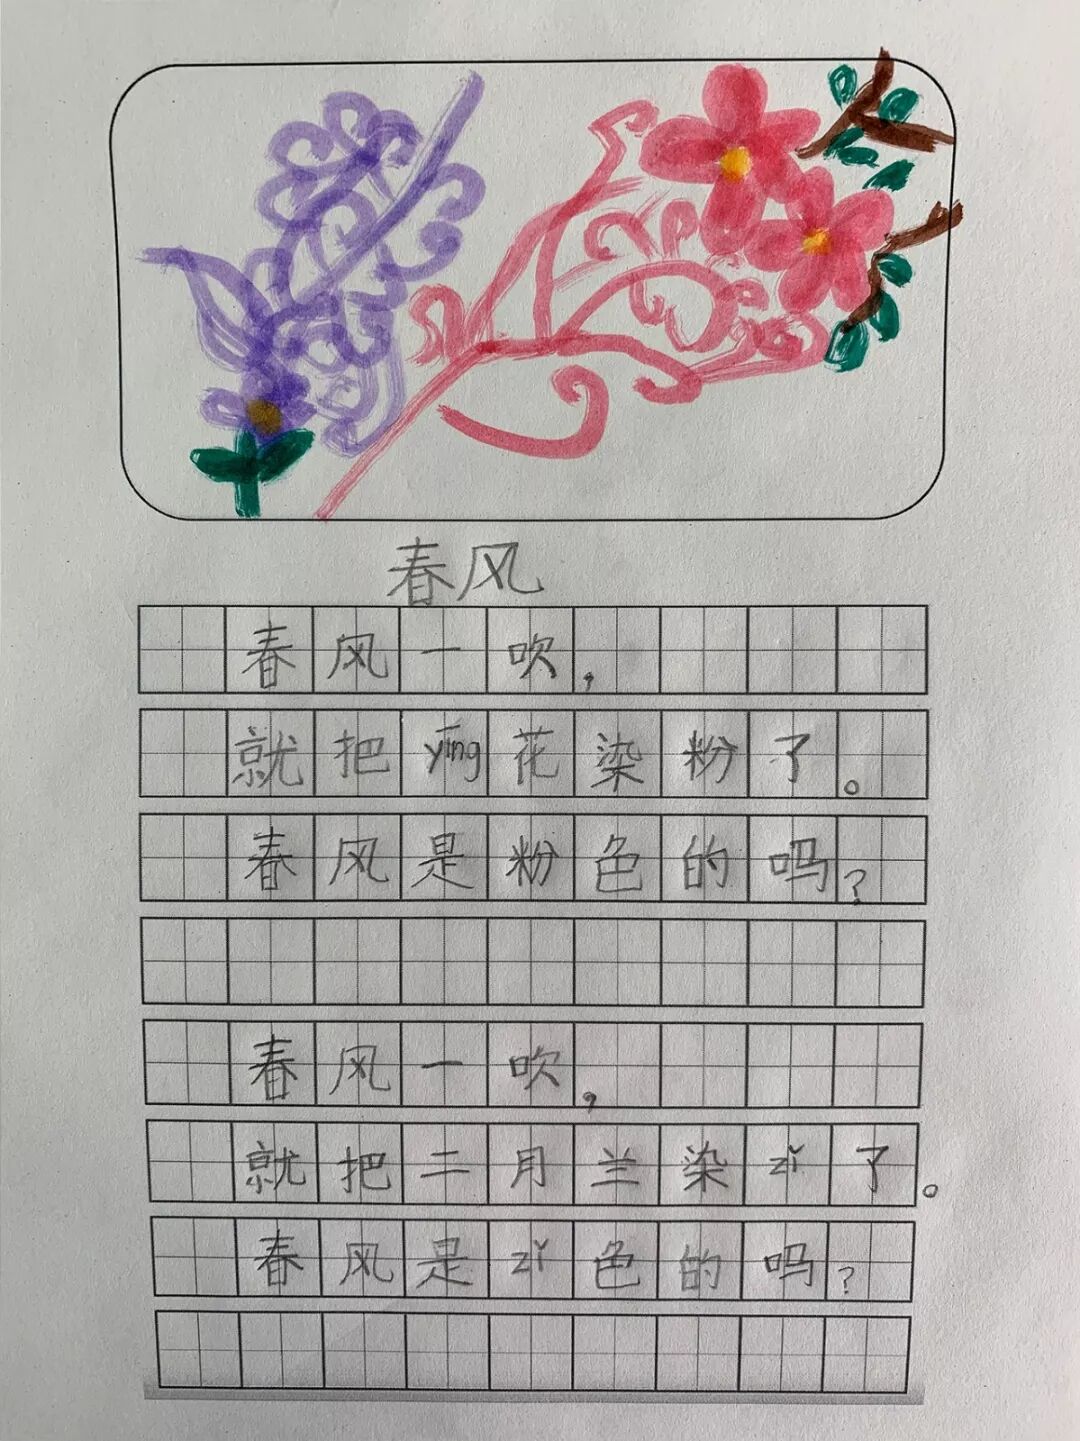 春风
春风一吹，
就把yīng花染粉了。
春风是粉色的吗？
春风一吹，
就把二月兰染zǐ了。
春风是zǐ色的吗？